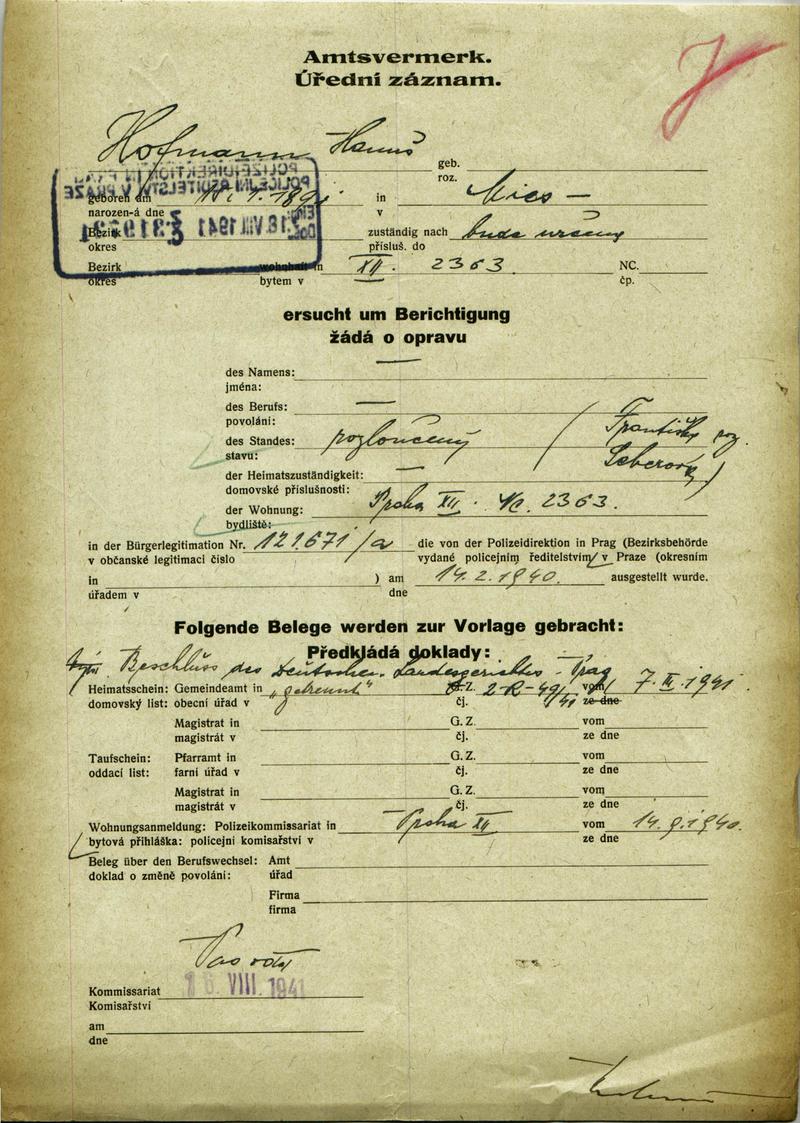 Amtsvermerk.
Úřední záznam.
J
Hofmann Hanuš
geb.
roz.
geboren am
narozen-á dne
in Mies –
v
Bezirk
okres
zuständig nach bude určeno
přísluš. do
Bezirk
okres
wohnhaft in XII. 2363
bytem v
NC.
čp.
POLIZEIDIREKTION IN PRAG
POLICEJNÍ ŘEDITELSTVÍ V PRAZE
18. VIII. 1941
ersucht um Berichtigung
žádá o opravu
des Namens: —
jména:
des Berufs: —
povolání:
des Standes: rozloučený (Františka roz.
stavu:
der Heimatszuständigkeit: —
domovské příslušnosti:
der Wohnung: Praha XII. Nc. 2363.
bydliště:
in der Bürgerlegitimation Nr. 121.671/a die von der Polizeidirektion in Prag (Bezirksbehörde
v občanské legitimaci číslo vydané policejním ředitelstvím v Praze (okresním
in ) am 14.2.1940. ausgestellt wurde.
úřadem v dne
Folgende Belege werden zur Vorlage gebracht:
Předkládá doklady:
Beschluss des Deutschen Landesgerichtes - Prag
Heimatsschein: Gemeindeamt in „getrennt“ G. Z. 2-R-49/41 vom 7. III. 1941.
domovský list: obecní úřad v čj. ze dne
Magistrat in G. Z. vom
magistrát v čj. ze dne
Taufschein: Pfarramt in G. Z. vom
oddací list: farní úřad v čj. ze dne
Magistrat in G. Z. vom
magistrát v čj. ze dne
Wohnungsanmeldung: Polizeikommissariat in Praha XII vom 14.9.1940.
bytová přihláška: policejní komisařství v ze dne
Beleg über den Berufswechsel: Amt
doklad o změně povolání: úřad
Firma
firma
Kommissariat
16. VIII. 1941
Komisařství
am
dne